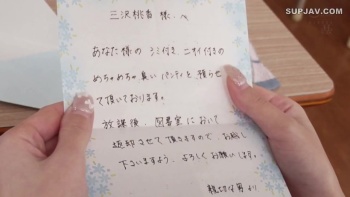 SUPJAV.COM
三沢桃香 様 へ
あなた様の シミ付き ニオイ付きの
めちゃめちゃ臭い パンティを 預らせ
て頂いております。
放課後、図書室において
返却させて 頂きますので、お越し
下さいますよう、よろしくお願いします。
より